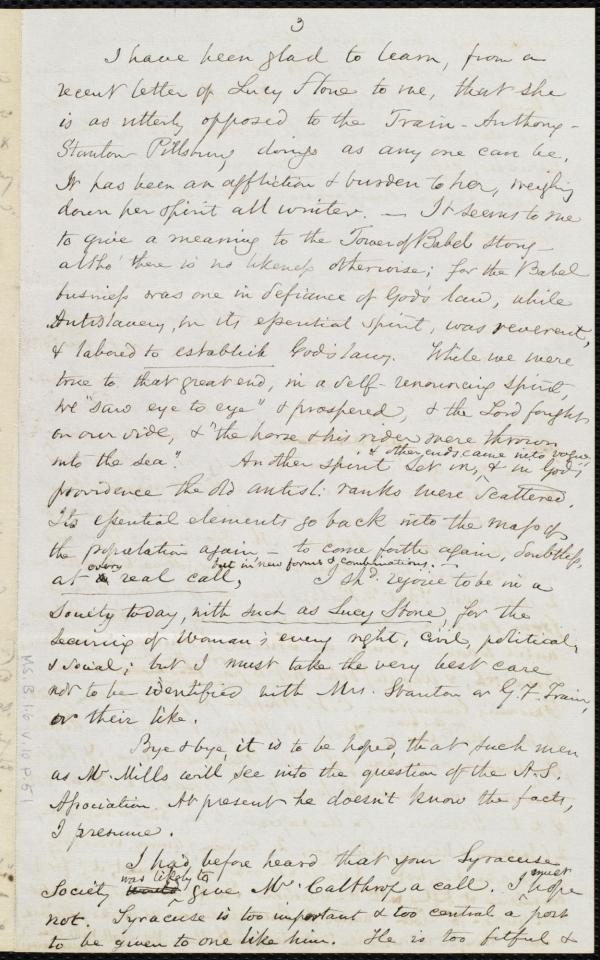 3
I have been glad to learn, from a
recent letter of Lucy Stone to me, that she
is as utterly opposed to the Train-Anthony-
Stanton Pillsbury doings as any one can be.
It has been an affliction & burden to her, weighing
down her spirit all winter. — It seems to me
to give a meaning to the Tower of Babel story —
altho' there is no likeness otherwise; for the Babel
business was one in defiance of God's law, while
Antislavery, in its essential spirit, was reverent,
& labored to establish God's laws. While we were
true to that great end, in a self-renouncing spirit,
we "saw eye to eye" & prospered, & the Lord fought
on our side, & "the horse & his rider were thrown
into the sea". Another spirit set in, & other ends came into vogue & in God's
providence the old antisl. ranks were scattered.
Its essential elements go back into the mass of
the population again — to come forth again, doubtless,
but in new forms & combinations. —
at every real call, I shd. rejoice to be in a
Society today, with such as Lucy Stone, for the
securing of Woman's every right, civil, political,
& social; but I must take the very best care
not to be identified with Mrs. Stanton or G. F. Train,
or their like.
Bye & bye, it is to be hoped, that such men
as Mr Mills will see into the question of the A. S.
Association. At present he doesn't know the facts,
I presume.
I had before heard that your Syracuse
Society was likely to give Mr. Calthrop a call. I must hope
not. Syracuse is too important & too central a post
to be given to one like him. He is too fitful &
MS.B.1.6 V.10 P.51